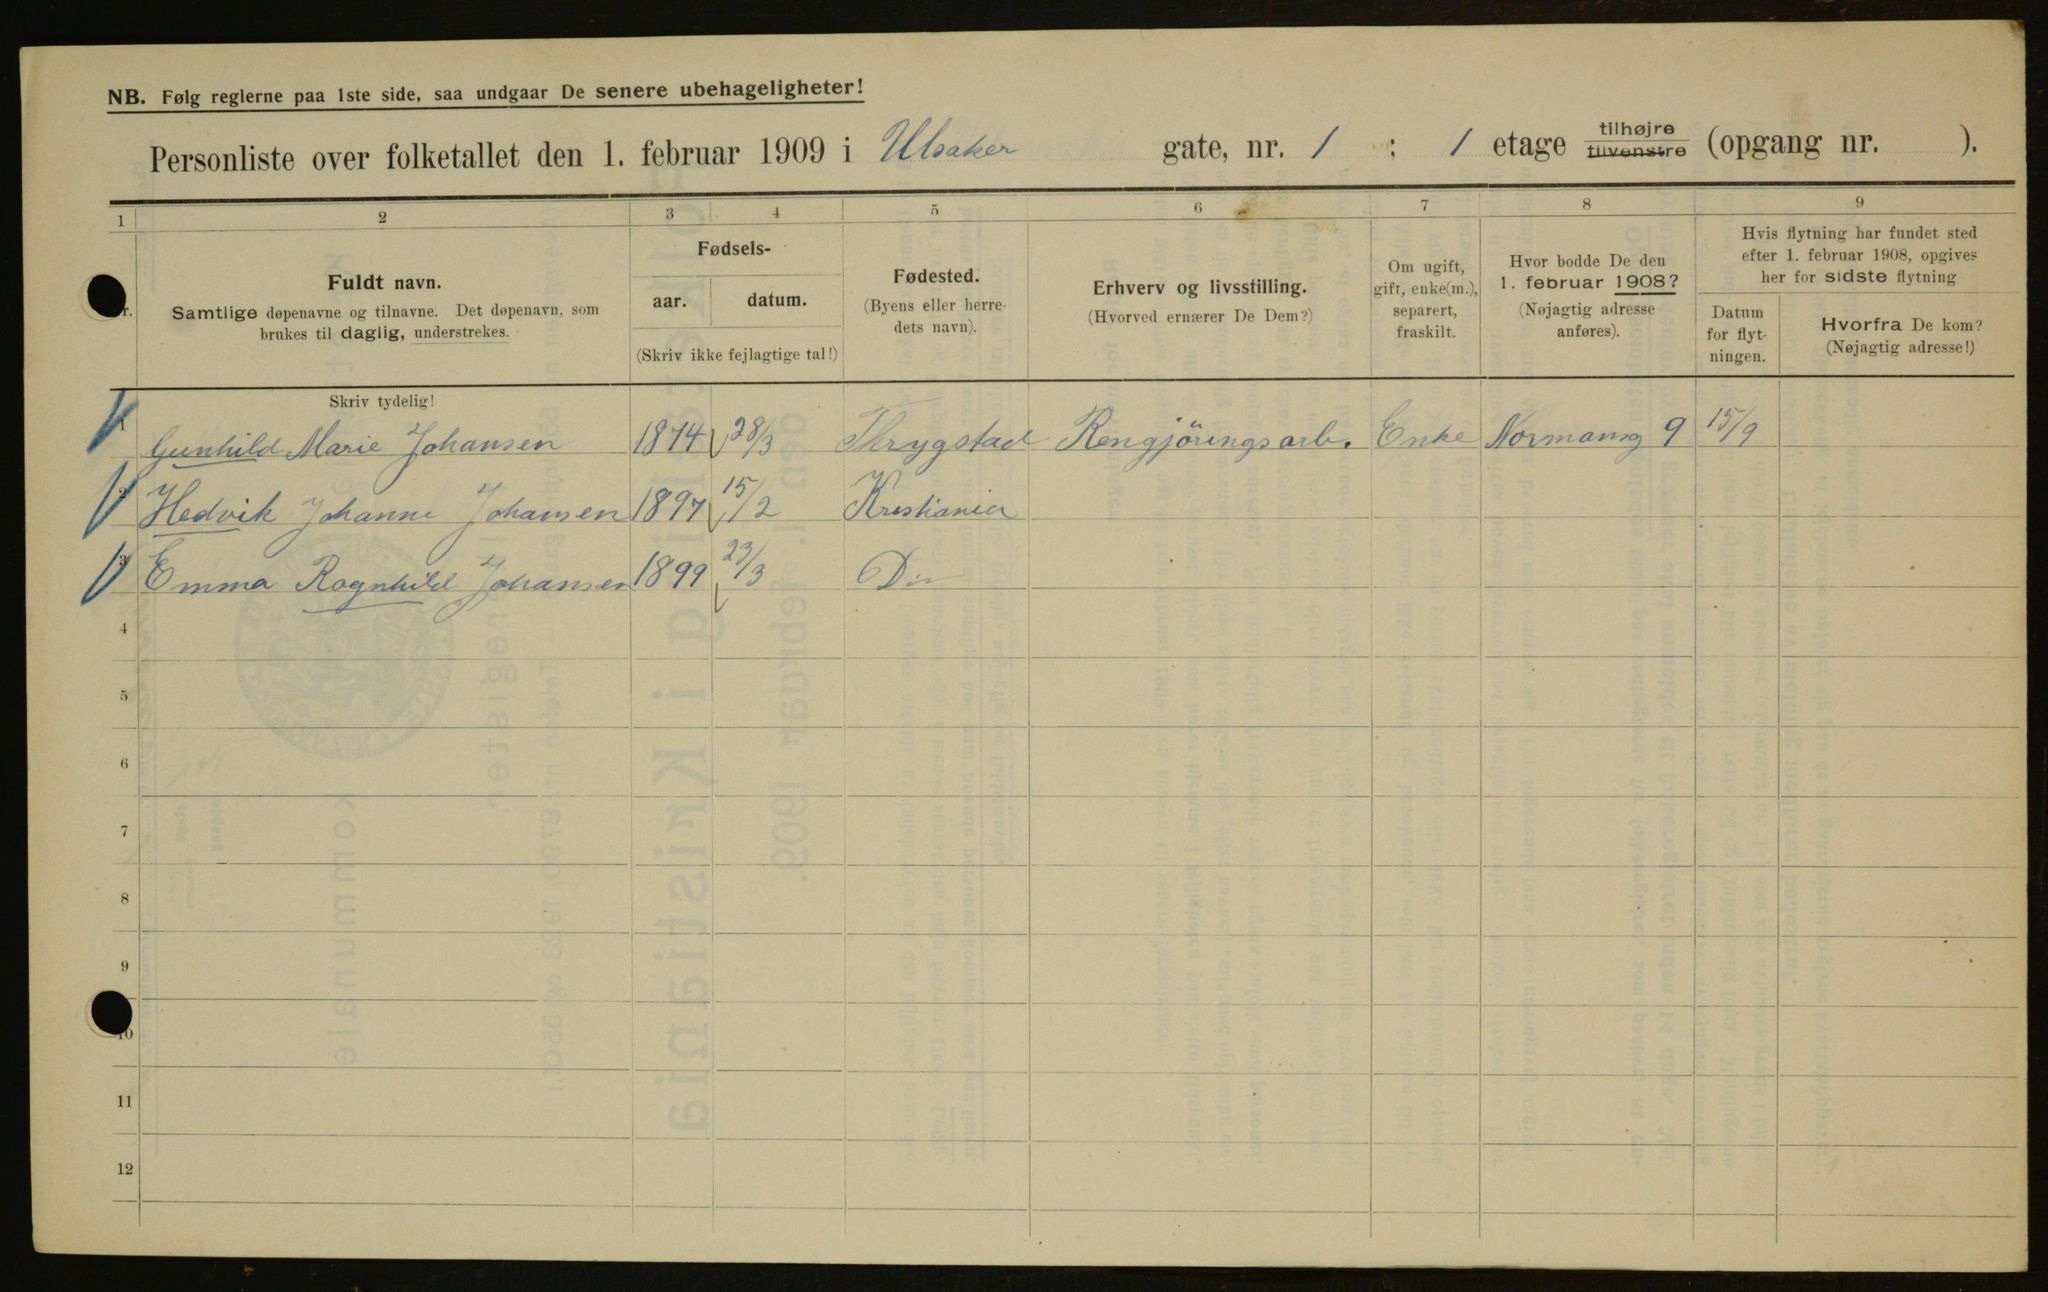 NB. Følg reglerne paa 1ste side, saa undgaar De senere ubehageligheter!
Personliste over folketallet den 1. februar 1909 i Ulsaker gate, nr. 1 ; 1 etage tilhøjre tilvenstre (opgang nr. ).
1 2 3 4 5 6 7 8 9
Fuldt navn.
Samtlige døpenavne og tilnavne. Det døpenavn, som
brukes til daglig, understrekes.
Fødsels-
aar. datum.
(Skriv ikke fejlagtige tal!)
Fødested.
(Byens eller herre-
dets navn).
Erhverv og livsstilling.
(Hvorved ernærer De Dem?)
Om ugift,
gift, enke(m.),
separert,
fraskilt.
Hvor bodde De den
1. februar 1908?
(Nøjagtig adresse
anføres).
Hvis flytning har fundet sted
efter 1. februar 1908, opgives
her for sidste flytning
Datum
for flyt-
ningen.
Hvorfra De kom?
(Nøjagtig adresse!)
Skriv tydelig!
1 Gunhild Marie Johansen 1874 28/3 Thrygstad Rengjöringsarb. Enke Normansg 9 15/9
2 Hedvik Johanne Johansen 1897 15/2 Kristiania
3 Emma Ragnhild Johansen 1899 23/3 Do
4
5
6
7
8
9
10
11
12